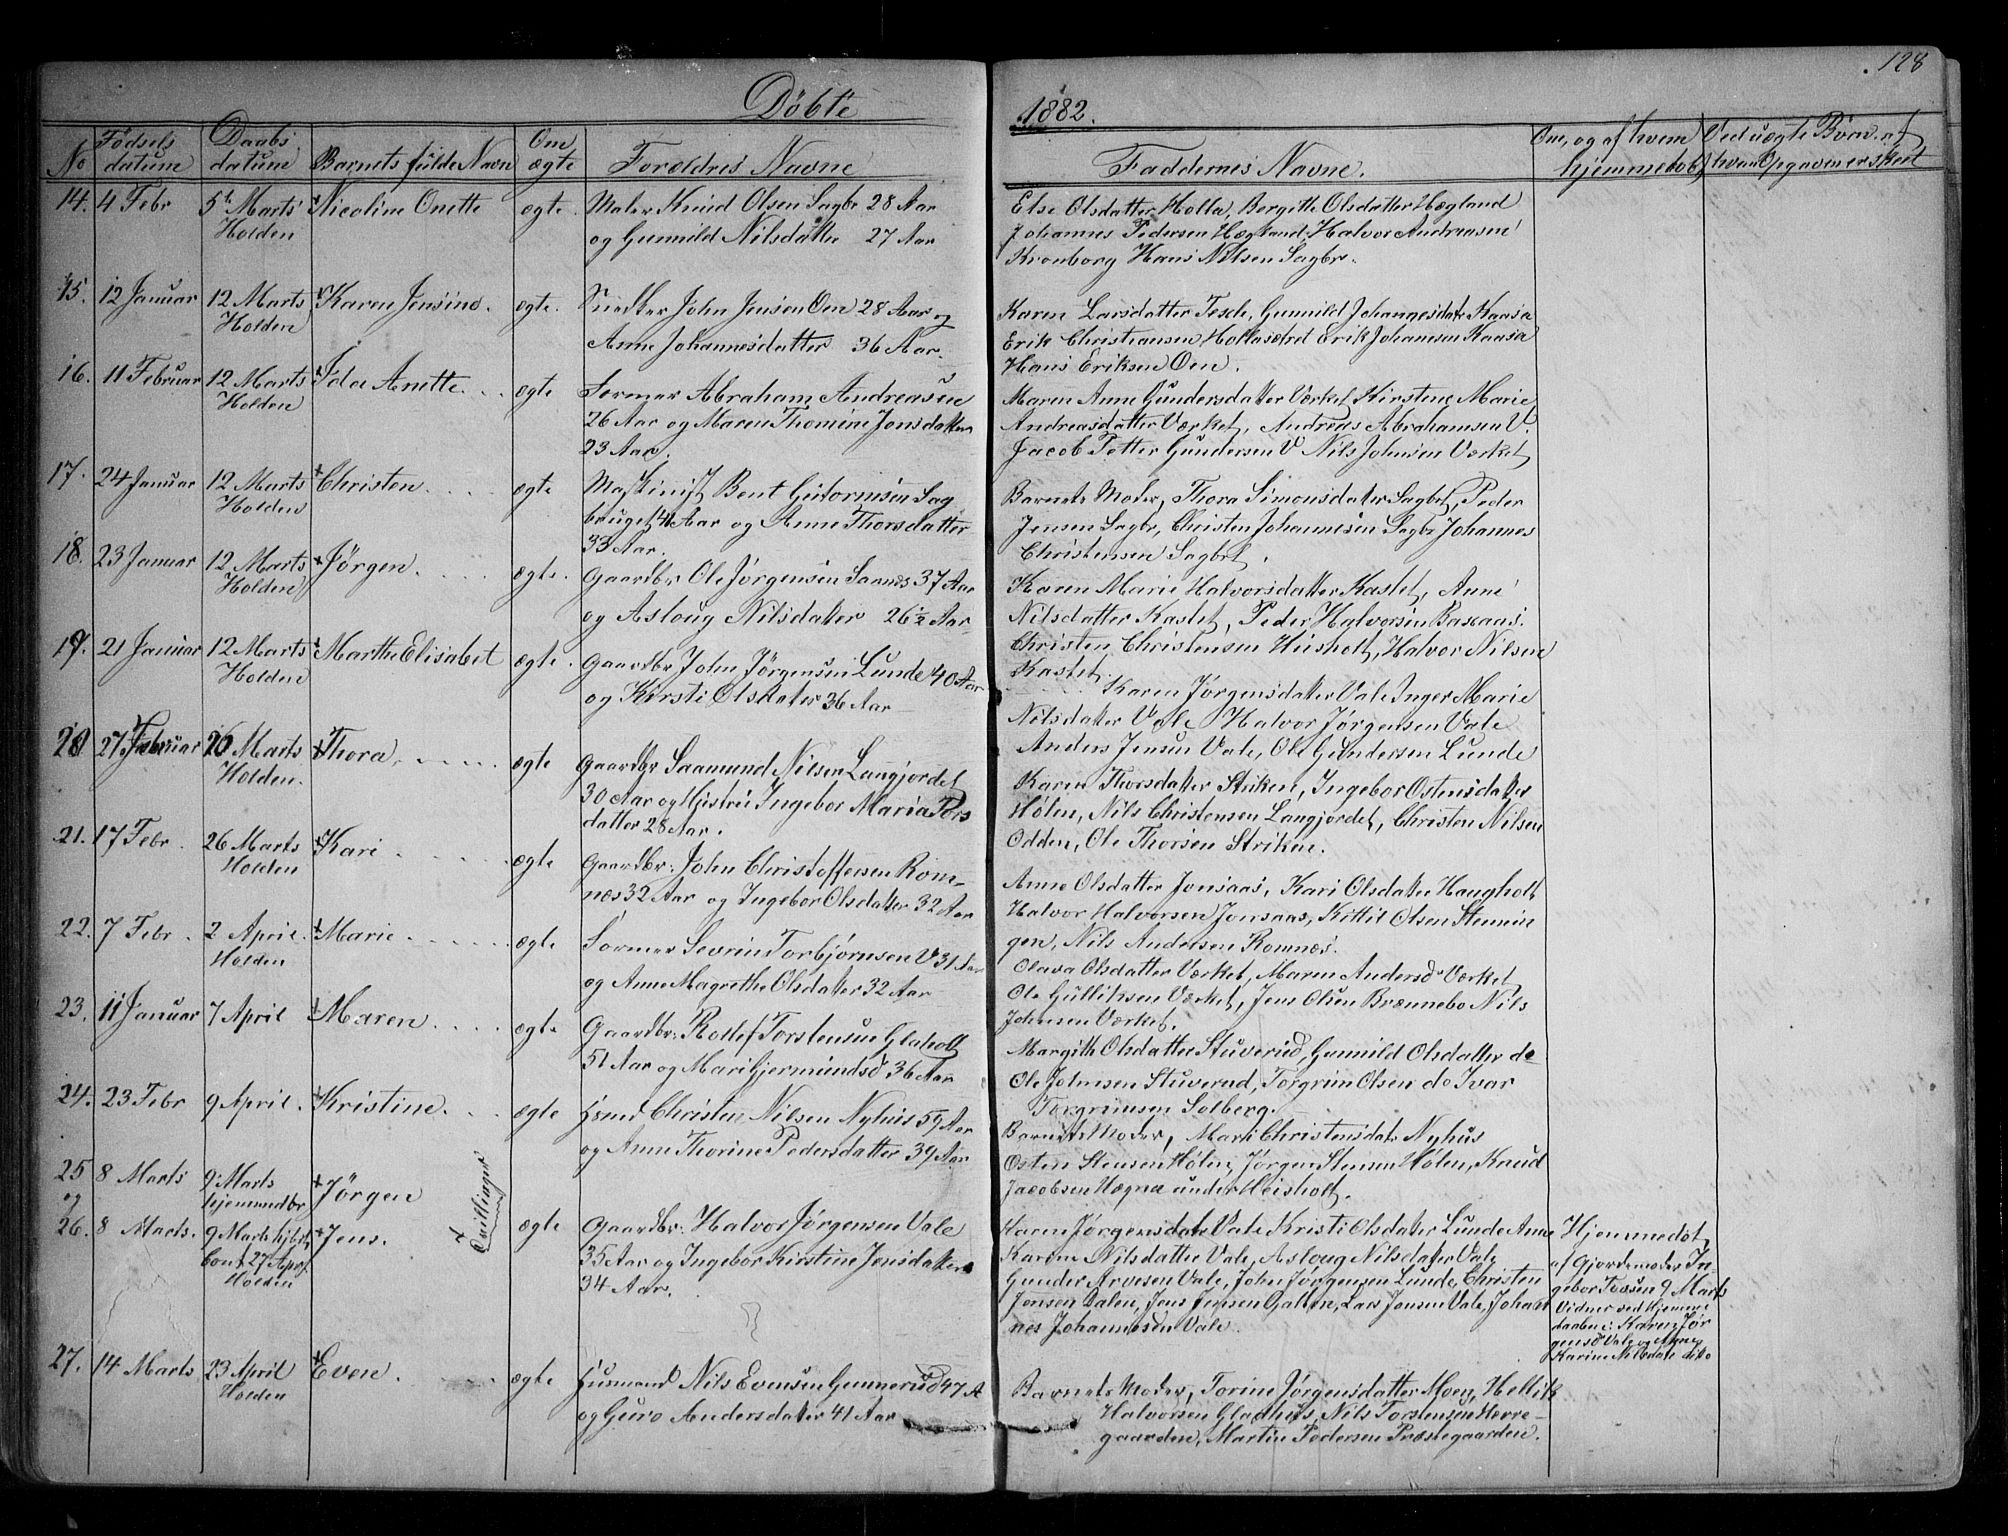 128
Døbte
1882.
No
Fødsels datum
Daabs datum
Barnets fulde Navn
Om ægte
Forældres Navne
Faddernes Navne.
Om, og af hvem hjemmedøbt
Ved uægte Børn, af hvem Opgaven er skeet
14. 4 Febr 5te Marts Nicoline Onette ægte. Maler Knud Olsen Sagbr 28 Aar
Holden og Gunnild Nilsdatter 27 Aar
Else Olsdatter Holla, Bergitte Olsdatter Hægland
Johannes Pedersen Hægland, Halvor Andreasen
Kronborg Hans Nilsen Sagbr.
15. 12 Januar 12 Marts Karen Jensine. ægte. Snedker John Jensen Oen 28 Aar og
Holden Anne Johannesdatter 36 Aar.
Karen Larsdatter Tesch, Gunnild Johannesdatr Kaasa
Erik Christiansen Hollasætret Erik Johannesen Kaasa
Hans Eriksen Oen.
16. 11 Februar 12 Marts Ida Anette ægte Formar Abraham Andreasen
Holden 26 Aar og Maren Thomine Jonsdatter
23 Aar.
Maren Anne Gundersdatter Værket, Kirstine Marie
Andreasdatter Værket, Andreas Abrahamsen V.
Jacob Petter Gundersen V Nils Johnsen Værket
17. 24 Januar 12 Marts Christen. ægte Maskinist Bent Guttormsen Sag
Holden bruget, 41 Aar og Anne Thorsdatter
33 Aar.
Barnets Moder, Thora Simonsdater Sagbrt, Peder
Jensen Sagbr, Christen Johannesen Sagbr Johannes
Christensen Sagbrt.
18. 23 Januar 12 Marts Jørgen. ægte. Gaardbr Ole Jørgensen Saanes 37 Aar
Holden og Asloug Nilsdater 26½ Aar
Karen Marie Halvorsdatter Kastet, Anne
Nilsdatter Kastet, Peder Halvorsen Baxaas.
Christen Christensen Hiisholt, Halvor Nilsen
Kastet.
19. 21 Januar 12 Marts Marthe Elisabet ægte. Gaardbr John Jørgensen Lunde 40 Aar
Holden og Kirsti Olsdater 36 Aar
Karen Jørgensdater Vale Inger Marie
Nilsdatter Vale Halvor Jørgensen Vale
Anders Jensen Vale, Ole Gundersen Lunde
20 27 Februar 26 Marts Thora ægte Gaardbr Saamund Nilsen Langjordet
Holden. 30 Aar og Hustru Ingebor Maria Tors
datter 28 Aar.
Karen Thorsdatter Striken, Ingebor Ostensdatter
Hølen, Nils Christensen Langjordet, Christen Nilsen
Odden, Ole Thorsen Striken.
21. 17 Febr 26 Marts Kari ægte Gaardbr: John Christoffersen Rom-
Holden næs 32 Aar og Ingebor Olsdatter 32 Aar
Anne Olsdatter Jonsaas, Kari Olsdatter Haugholt
Halvor Halvorsen Jonsaas, Kittil Olsen Stennin
gen, Nils Andersen Romnæs.
22. 7 Febr. 2 April. Marie ægte Formar Sevrin Torbjørnsen V 31 Aar
Holden og Anne Magrethe Olsdater 32 Aar
Olava Olsdatter Værket, Maren Andersd Værket
Ole Gulliksen Værket, Jens Olsen Brænnebo Nils
Johnsen Værket.
23. 11 Januar 7 April Maren ægte Gaardbr: Rollef Torstensen Glaholt
51 Aar og Mari Gjermundsd 36 Aar
Margith Olsdatter Stuverud, Gunnild Olsdatter do
Ole Johnsen Stuverud, Torgrim Olsen do Ivar
Torgrimsen Solberg.
24. 23 Febr 9 April. Kristine. ægte Hsmd Christen Nilsen Nyhus 59 Aar
og Anne Thorine Pedersdatter 39 Aar
Barnets Moder, Mari Christensdatr Nyhus
Osten Stensen Hølen, Jørgen Stensen Hølen, Knud
Jacobsen Hægna under Heisholt.
25 8 Marts 9 Marts Jørgen
og hjemmedbr
26. 8 Marts. 9 Marts hjdt Jens. Tvillinger ægte Gaardbr: Halvor Jørgensen Vale
conf 27 Apr 35 Aar og Ingebor Kirstine Jensdatter
Holden 34 Aar.
Karen Jørgensdatr Vale Kristi Olsdater Lunde Anne
Karine Nilsdatter Vale, Asloug Nilsdater Vale
Gunder Arvesen Vale, John Jørgensen Lunde, Christen
Jensen Dalen, Jens Jensen Galten, Lars Jensen Vale, Johan
nes Johannesen Vale.
Hjemmedøt
af Gjordemoder In
gebor Tossen 9 Marts
Vidner ved Hjemme
daaben: Karen Jør
gensd Vale og Anne
Karine Nilsdatr ditto
27. 14 Marts 23 April Even. ægte Husmand Nils Evensen Gunnerud 47 A
Holden og Guro Andersdater 41 Aar
Barnets Moder, Torine Jørgensdatter Moen, Hellik
Halvorsen Gladhus, Nils Torstensen Herre-
gaarden, Martin Pedersen Præstegaarden.